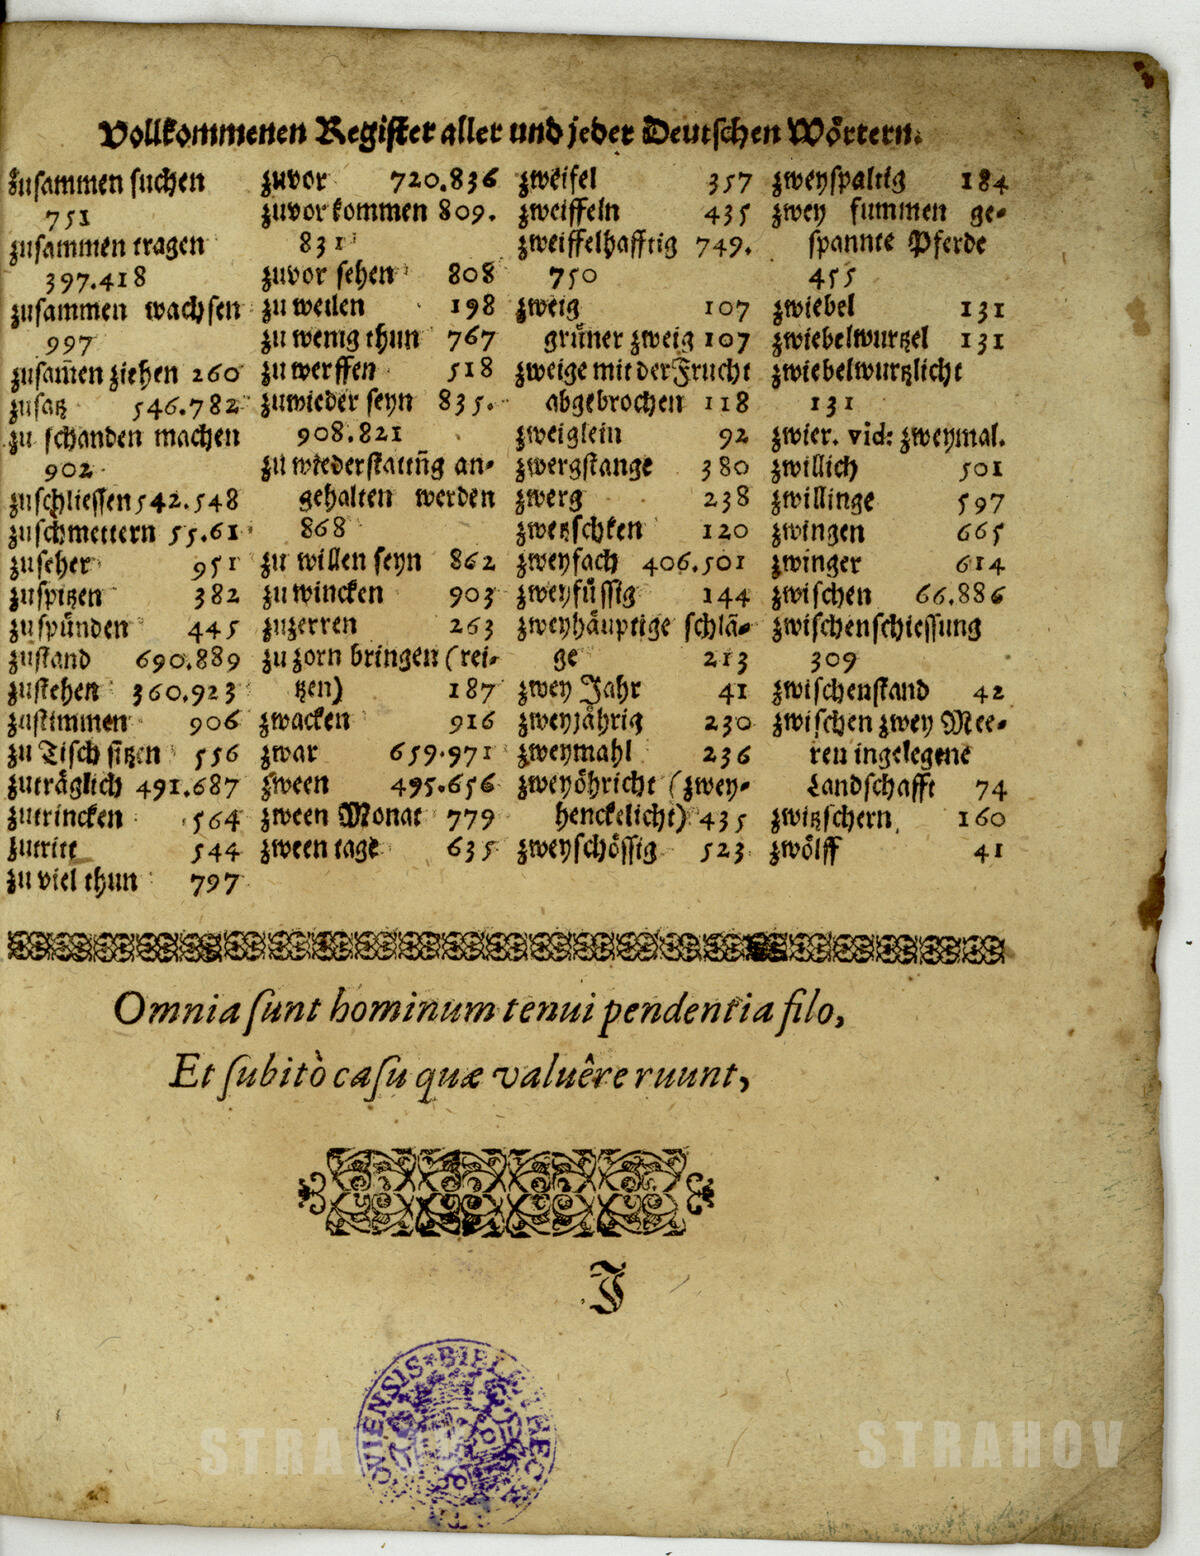 Vollkommenen Register aller und jeder Deutschen Wörtern.
zusammen suchen
751
zusammen tragen
397.418
zusammen wachsen
997
zusam̄en ziehen 260
zusatz 546.782
zu schanden machen
902
zuschliessen 542.548
zuschmettern 55.61
zuseher 951
zuspitzen 382
zuspünden 445
zustand 690.889
zustehen 360.923
zustimmen 906
zu Tisch sitzen 556
zuträglich 491.687
zutrincken 564
zutritt 544
zu viel thun 797
zuvor 720.836
zuvor kommen 809.
831
zuvor sehen 808
zu weilen 198
zu wenig thun 767
zu werffen 518
zuwieder seyn 835.
908.821
zu wiederstattūg an-
gehalten werden
868
zu willen seyn 862
zu wincken 903
zuzerren 263
zu zorn bringen (rei-
tzen) 187
zwacken 916
zwar 659.971
zween 495.656
zween Monat 779
zween tage 635
zweifel 357
zweiffeln 435
zweiffelhafftig 749.
750
zweig 107
grüner zweig 107
zweige mit der Frucht
abgebrochen 118
zweiglein 92
zwergstange 380
zwerg 238
zwetzschken 120
zweyfach 406.501
zweyfüssig 144
zweyhäuptige schlā-
ge 213
zwey Jahr 41
zweyjährig 230
zweymahl 236
zweyöhricht (zwey-
henckelicht) 435
zweyschössig 523
zweyspaltig 184
zwey fummen ge-
spannte Pferde
455
zwiebel 131
zwiebelwurtzel 131
zwiebelwurtzlicht
131
zwier. vid: zweymal.
zwillich 501
zwillinge 597
zwingen 665
zwinger 614
zwischen 66.886
zwischenschiessung
309
zwischenstand 42
zwischen zwey Mee-
ren ingelegene
Landschafft 74
zwitzschern 160
zwölff 41
Omnia sunt hominum tenui pendentia filo,
Et subitò casu quæ valuêre ruunt,
J
STRAHOV